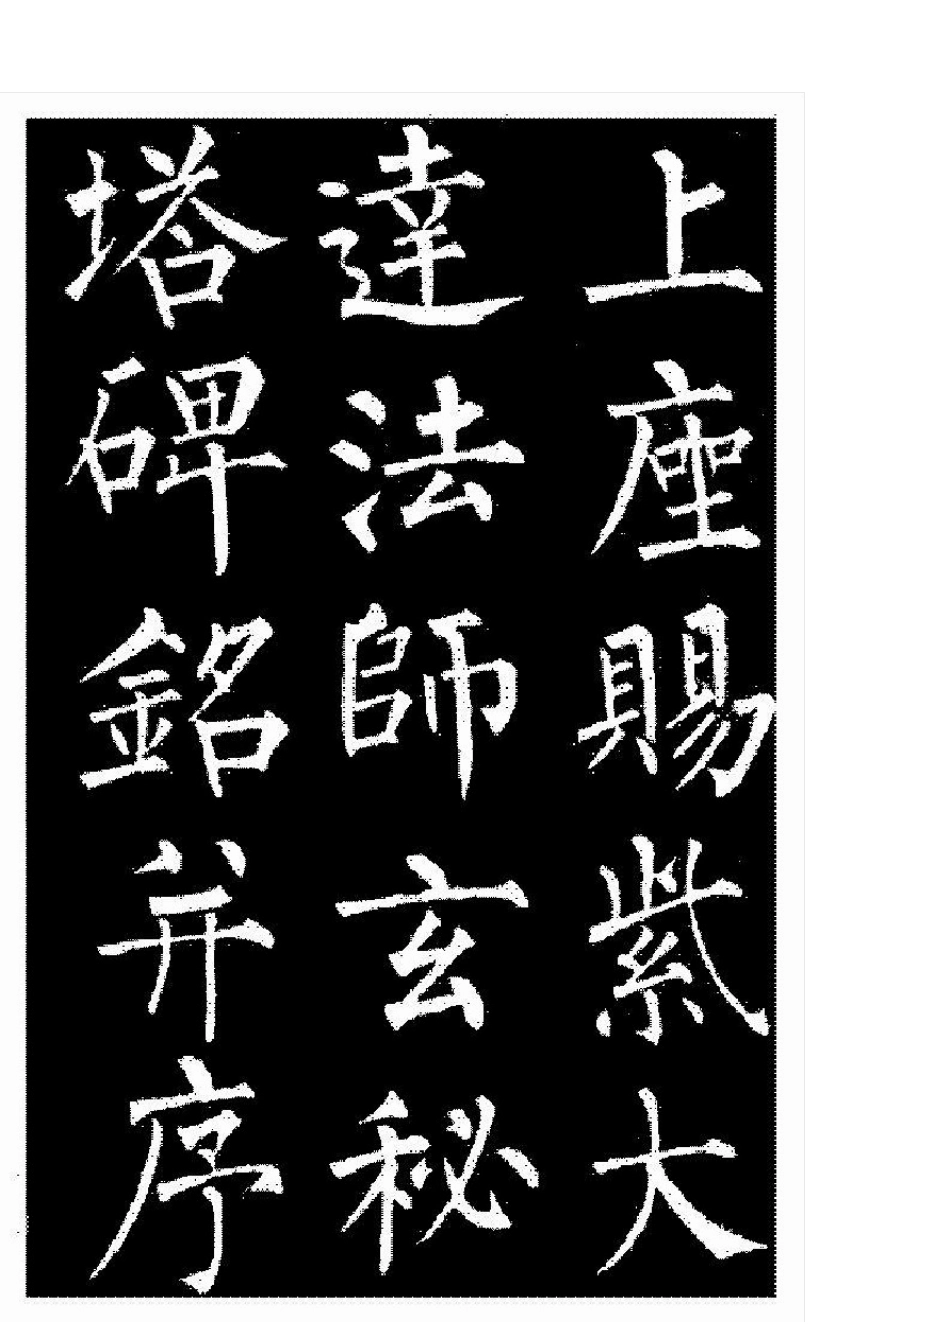 上座賜紫大
達法師玄秘
塔碑銘并序